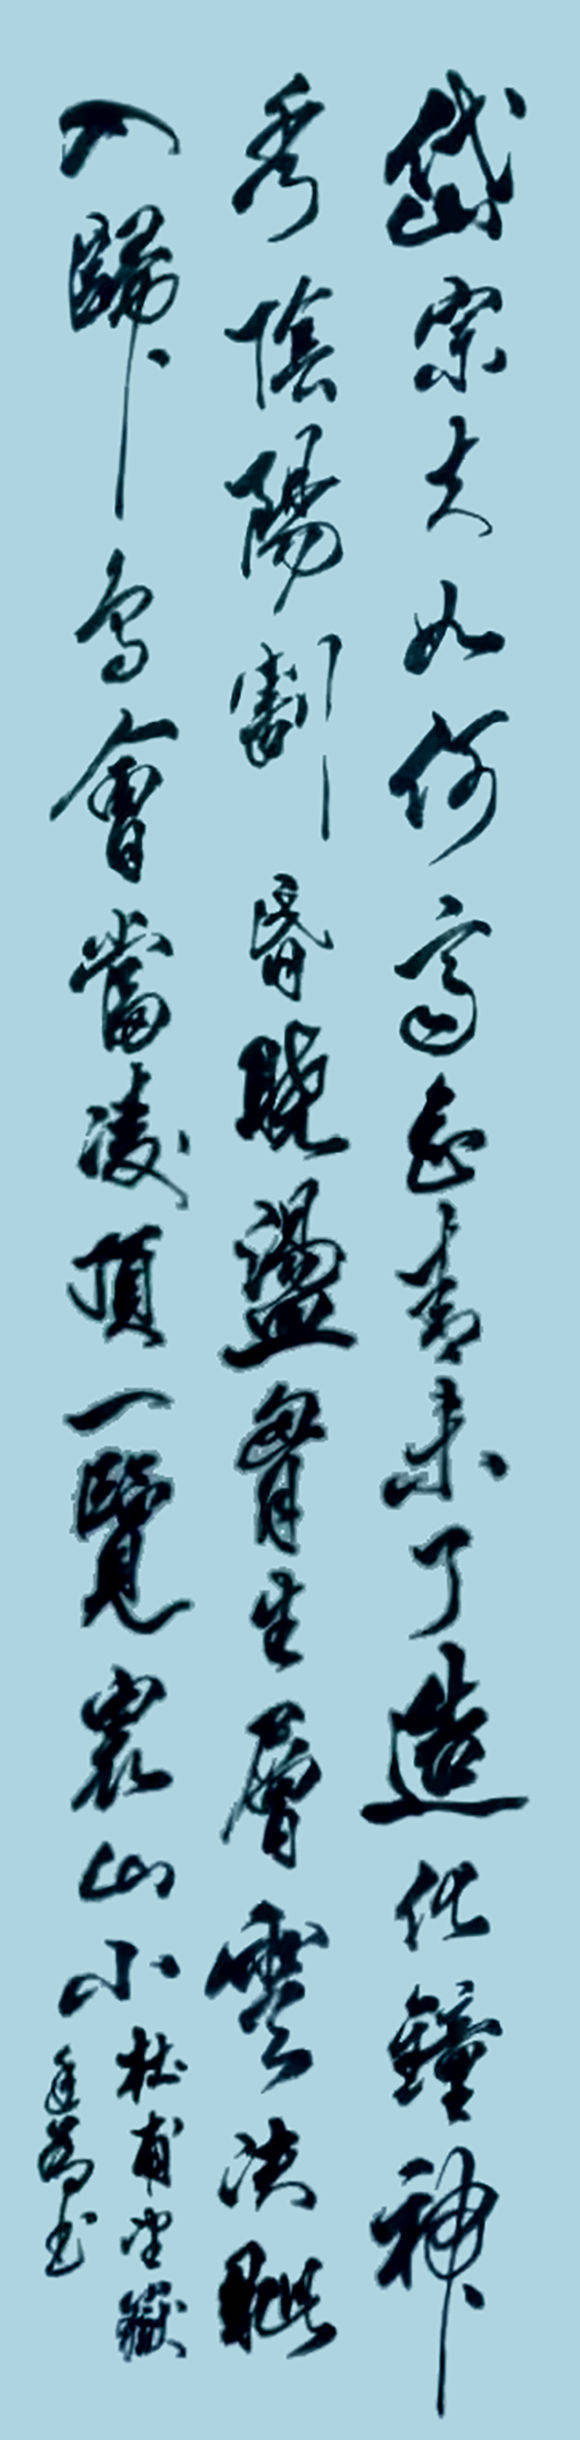 岱宗夫如何齊魯青未了造化鐘神
秀陰陽割昏曉盪胷生層雲決眦
入歸鳥會當凌頂一覽衆山小
杜甫望嶽
書